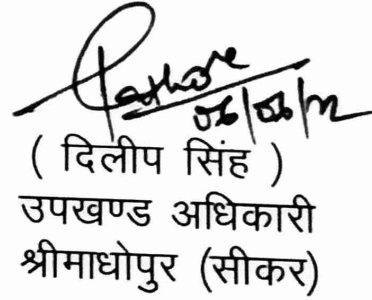 Rathore
06/06/22
( दिलीप सिंह )
उपखण्ड अधिकारी
श्रीमाधोपुर (सीकर)